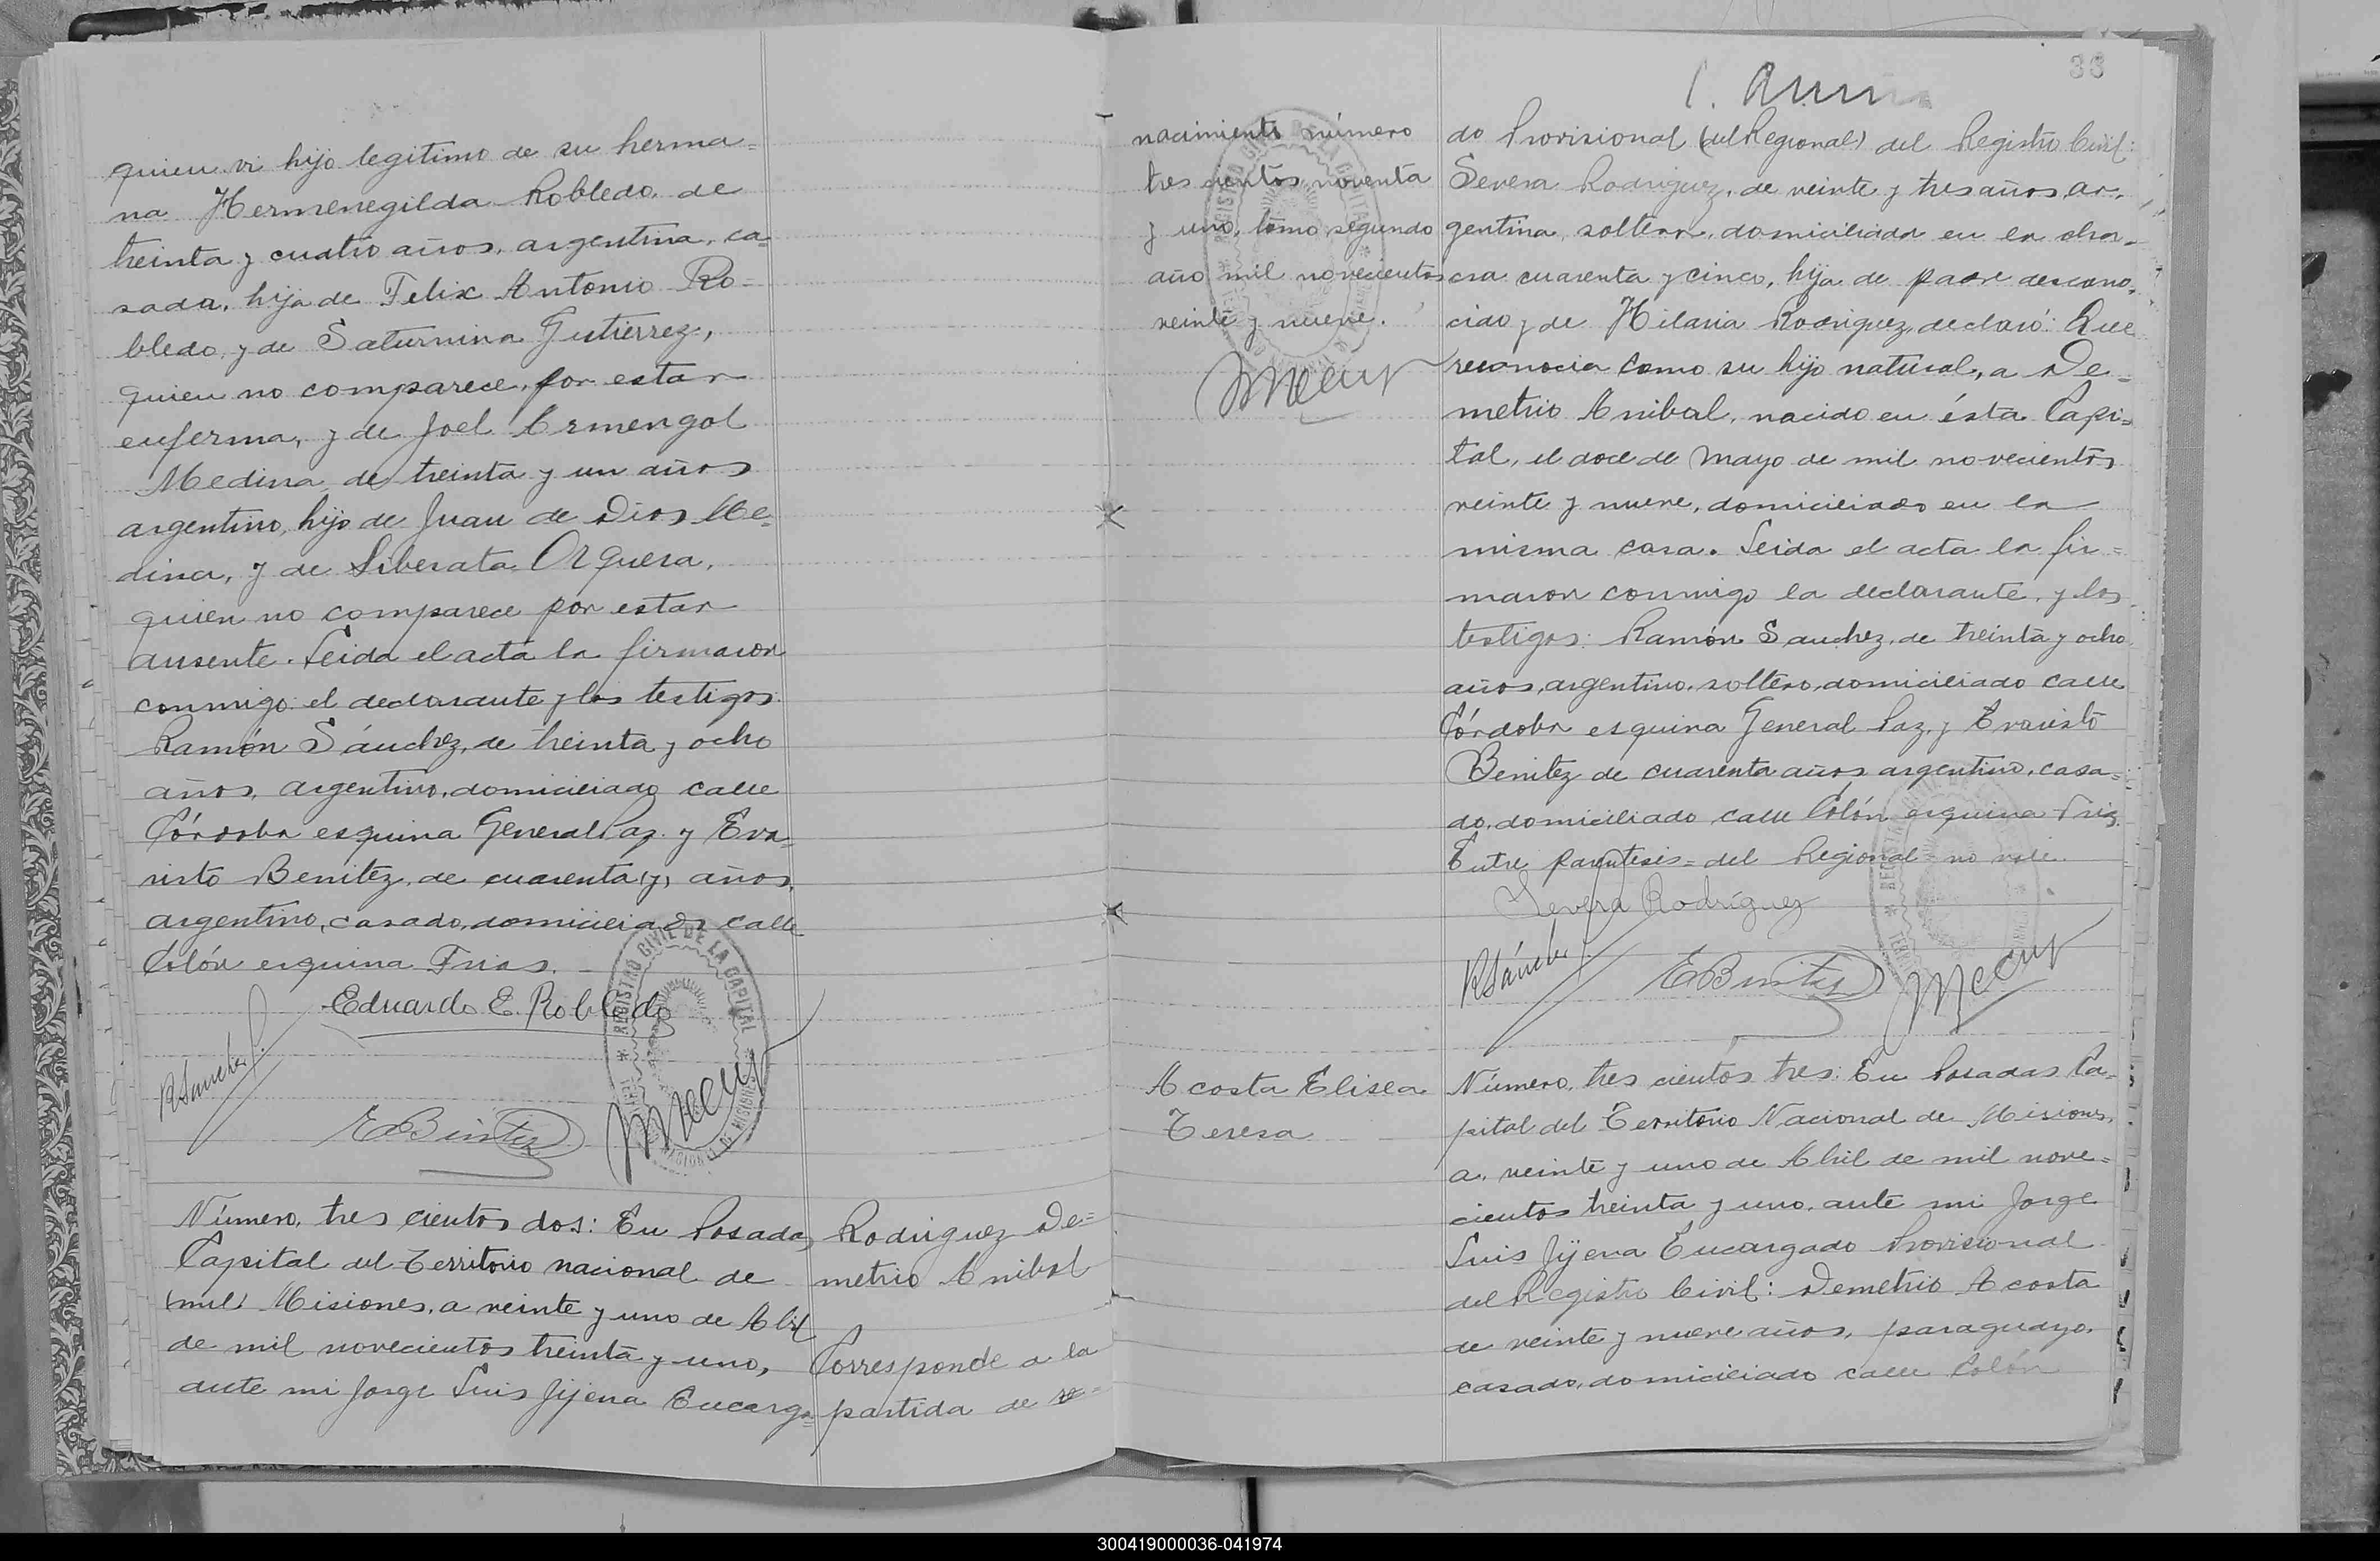 quien vi hijo legitimo de su herma=
na Hermenegilda Robledo, de
treinta y cuatro años, argentina, ca-
sada, hija de Felix Antonio Ro=
bledo, y de Saturnina Gutierrez,
quien no comparece, por estar
enferma, y de Joel Ermengol
Medina, de treinta y un años
argentino, hijo de Juan de Dios Me-
dina, y de Liberata Orquera,
quien no comparece por estar
ausente. Leida el acta la firmaron
conmigo: el declarante y los testigos:
Ramón Sánchez, de treinta y ocho
años, argentino, domiciliado calle
Córdoba esquina General Paz y Eva-
risto Benitez, de cuarenta (y) años,
argentino, casado, domiciliado calle
Colón esquina Frias.
Eduardo E. Robledo
RSanchez
EBenitez
REGISTRO CIVIL DE LA CAPITAL
Número, tres cientos dos: En Posadas,
Capital del Territorio nacional de
(mil) Misiones, a veinte y uno de Abril
de mil novecientos treinta y uno,
ante mi Jorge Luis Jijena Encarga=
Rodriguez De=
metrio Anibal
Corresponde a la
partida de
33
nacimiento número
tres cientos noventa
y uno, tomo segundo
año mil novecientos
veinte y nueve.
do Provisional (del Regional) del Registro Civil:
Severa Rodriguez, de veinte y tres años, ar-
gentina, soltera, domiciliada en la cha-
cra cuarenta y cinco, hija de padre descono-
cido y de Hilaria Rodriguez, declaró: Que
reconocia como su hijo natural, a De-
metrio Anibal, nacido en ésta Capi-
tal, el doce de Mayo de mil novecientos
veinte y nueve, domiciliado en la
misma casa. Leida el acta la fir=
maron conmigo la declarante, y los
testigos: Ramón Sanchez, de treinta y ocho
años, argentino, soltero, domiciliado calle
Córdoba esquina General Paz, y Evaristo
Benitez de cuarenta años argentino, casa=
do, domiciliado calle Colón esquina Frias.
Entre parentesis = del Regional = no vale.
Severa Rodríguez
RSánchez
EBenitez
Acosta Elisea
Teresa
Número, tres cientos tres: En Posadas Ca-
pital del Territorio Nacional de Misiones,
a, veinte y uno de Abril de mil nove=
cientos treinta y uno, ante mi Jorge
Luis Jijena Encargado Provisional
del Registro Civil: Demetrio Acosta
de veinte y nueve años, paraguayo,
casado, domiciliado calle Colón
300419000036-041974